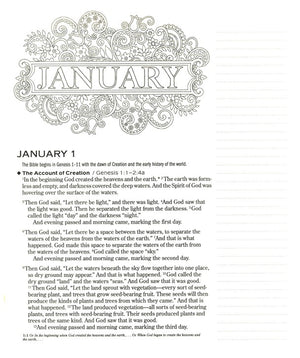 JANUARY
JANUARY 1
The Bible begins in Genesis 1–11 with the dawn of Creation and the early history of the world.
◆ The Account of Creation / Genesis 1:1–2:4a
¹In the beginning God created the heavens and the earth.* ²The earth was form-
less and empty, and darkness covered the deep waters. And the Spirit of God was
hovering over the surface of the waters.
³Then God said, “Let there be light,” and there was light. ⁴And God saw that
the light was good. Then he separated the light from the darkness. ⁵God
called the light “day” and the darkness “night.”
And evening passed and morning came, marking the first day.
⁶Then God said, “Let there be a space between the waters, to separate the
waters of the heavens from the waters of the earth.” ⁷And that is what
happened. God made this space to separate the waters of the earth from
the waters of the heavens. ⁸God called the space “sky.”
And evening passed and morning came, marking the second day.
⁹Then God said, “Let the waters beneath the sky flow together into one place,
so dry ground may appear.” And that is what happened. ¹⁰God called the
dry ground “land” and the waters “seas.” And God saw that it was good.
¹¹Then God said, “Let the land sprout with vegetation—every sort of seed-
bearing plant, and trees that grow seed-bearing fruit. These seeds will then
produce the kinds of plants and trees from which they came.” And that is
what happened. ¹²The land produced vegetation—all sorts of seed-bearing
plants, and trees with seed-bearing fruit. Their seeds produced plants and
trees of the same kind. And God saw that it was good.
¹³And evening passed and morning came, marking the third day.
1:1 Or In the beginning when God created the heavens and the earth, . . . Or When God began to create the heavens and
the earth, . . .